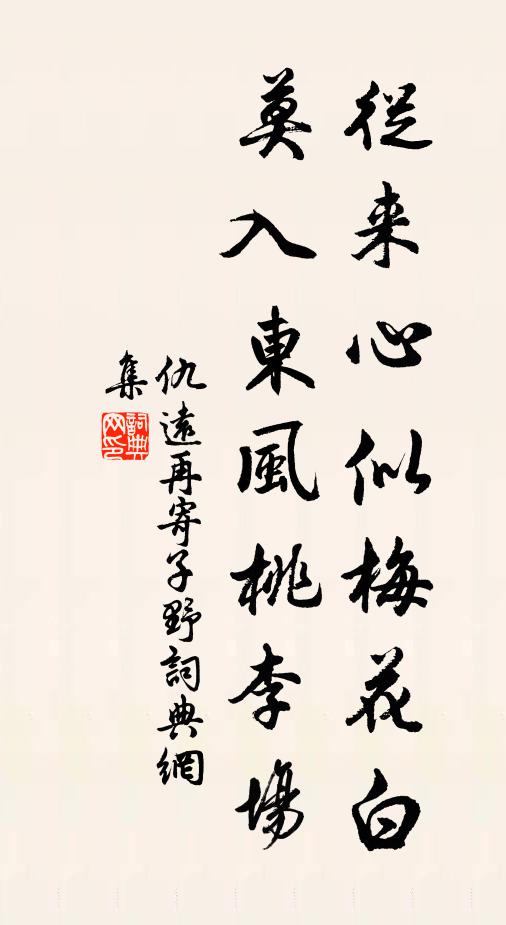 從来心似梅花白
莫入東風桃李場
仇遠再寄子野詞典網
集
詞典
网印